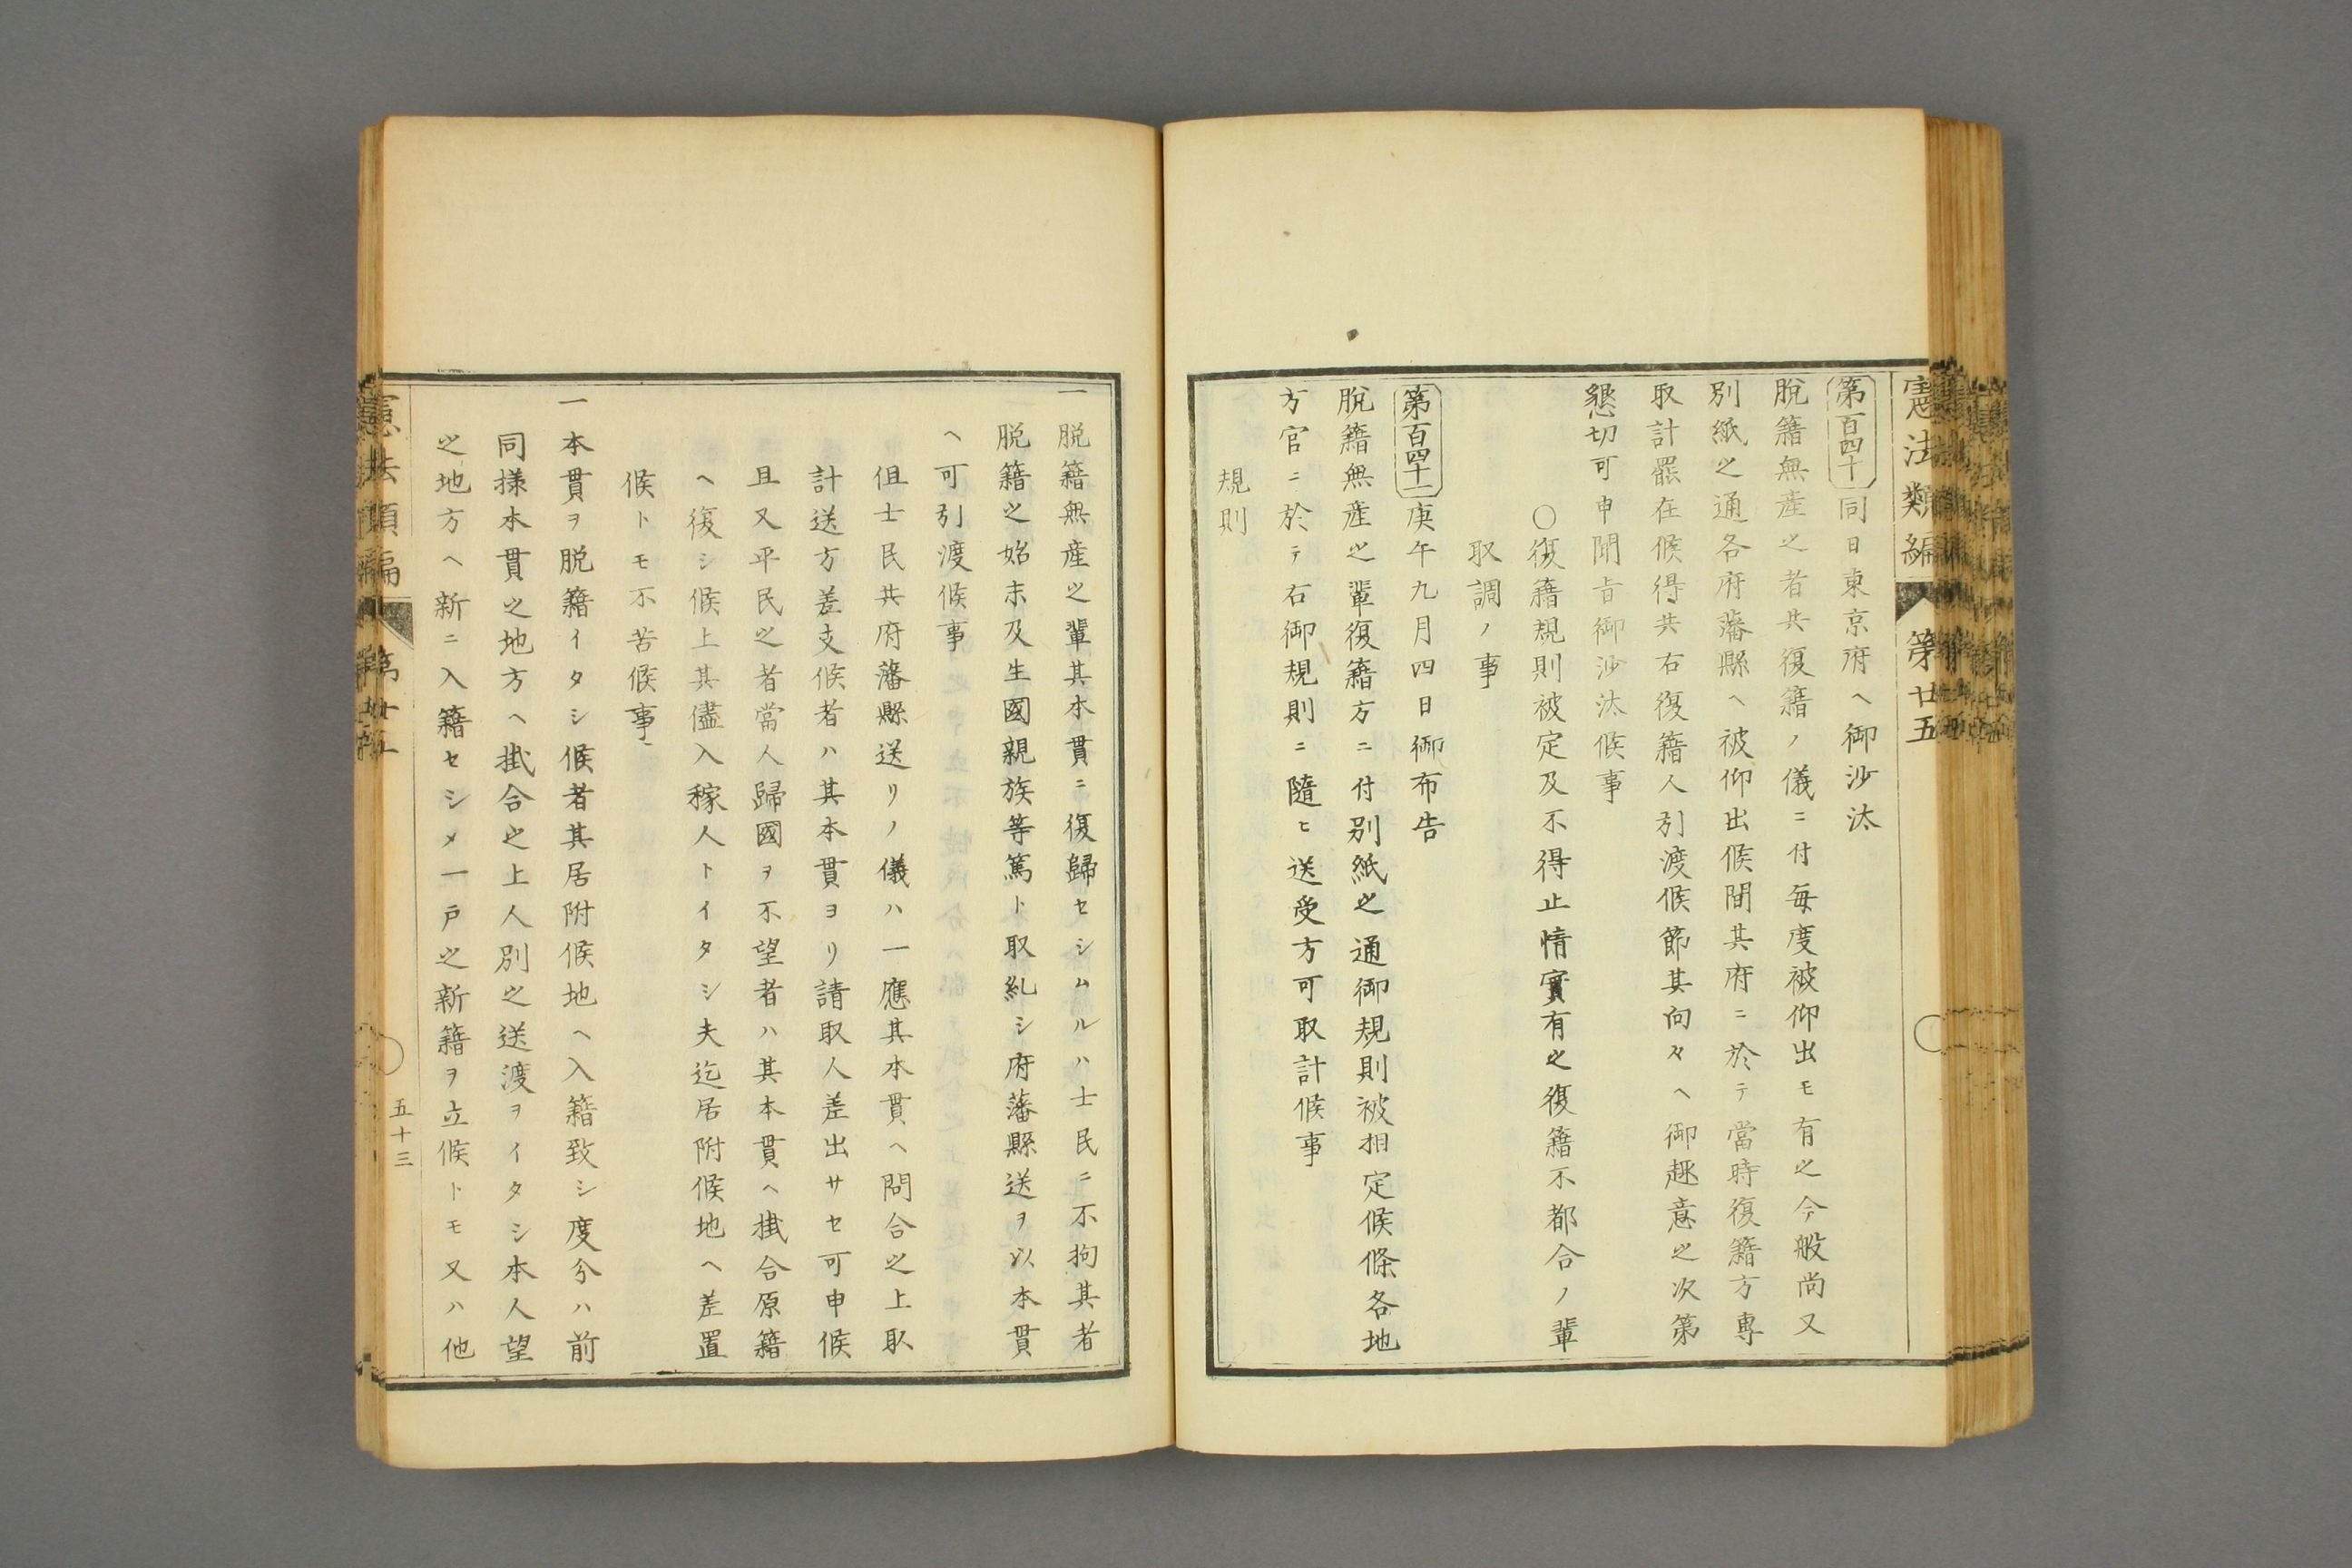 憲法類編 第廿五
第百四十 同日東京府ヘ御沙汰
脱籍無産之者共復籍ノ儀ニ付毎度被仰出モ有之今般尚又
別紙之通各府藩縣ヘ被仰出候間其府ニ於テ當時復籍方專
取計罷在候得共右復籍人引渡候節其向々ヘ御趣意之次第
懇切可申聞旨御沙汰候事
〇復籍規則被定及不得止情實有之復籍不都合ノ輩
取調ノ事
第百四十一 庚午九月四日御布告
脱籍無産之輩復籍方ニ付別紙之通御規則被相定候條各地
方官ニ於テ右御規則ニ隨ヒ送受方可取計候事
規則
一脱籍無産之輩其本貫ニ復歸セシムルハ士民ニ不拘其者
脱籍之始末及生國親族等篤ト取糺シ府藩縣送ヲ以本貫
ヘ可引渡候事
但士民共府藩縣送リノ儀ハ一應其本貫ヘ問合之上取
計送方差支候者ハ其本貫ヨリ請取人差出サセ可申候
且又平民之者當人歸國ヲ不望者ハ其本貫ヘ掛合原籍
ヘ復シ候上其儘入稼人トイタシ夫迄居附候地ヘ差置
候トモ不苦候事
一本貫ヲ脱籍イタシ候者其居附候地ヘ入籍致シ度分ハ前
同様本貫之地方ヘ掛合之上人別之送渡ヲイタシ本人望
之地方ヘ新ニ入籍セシメ一戸之新籍ヲ立候トモ又ハ他
憲法類編 第廿五
五十三